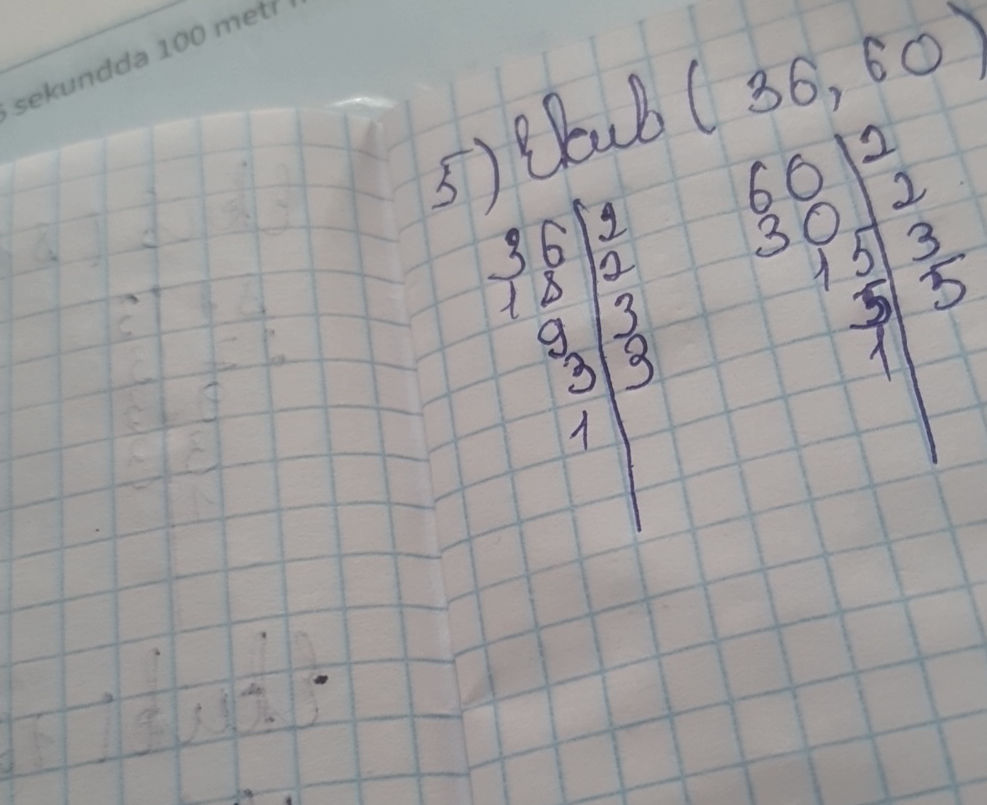 sekundda 100 metr
5) Ekub (36, 60)
36 | 2
18 | 2
9 | 3
3 | 3
1
60 | 2
30 | 2
15 | 3
5 | 5
1